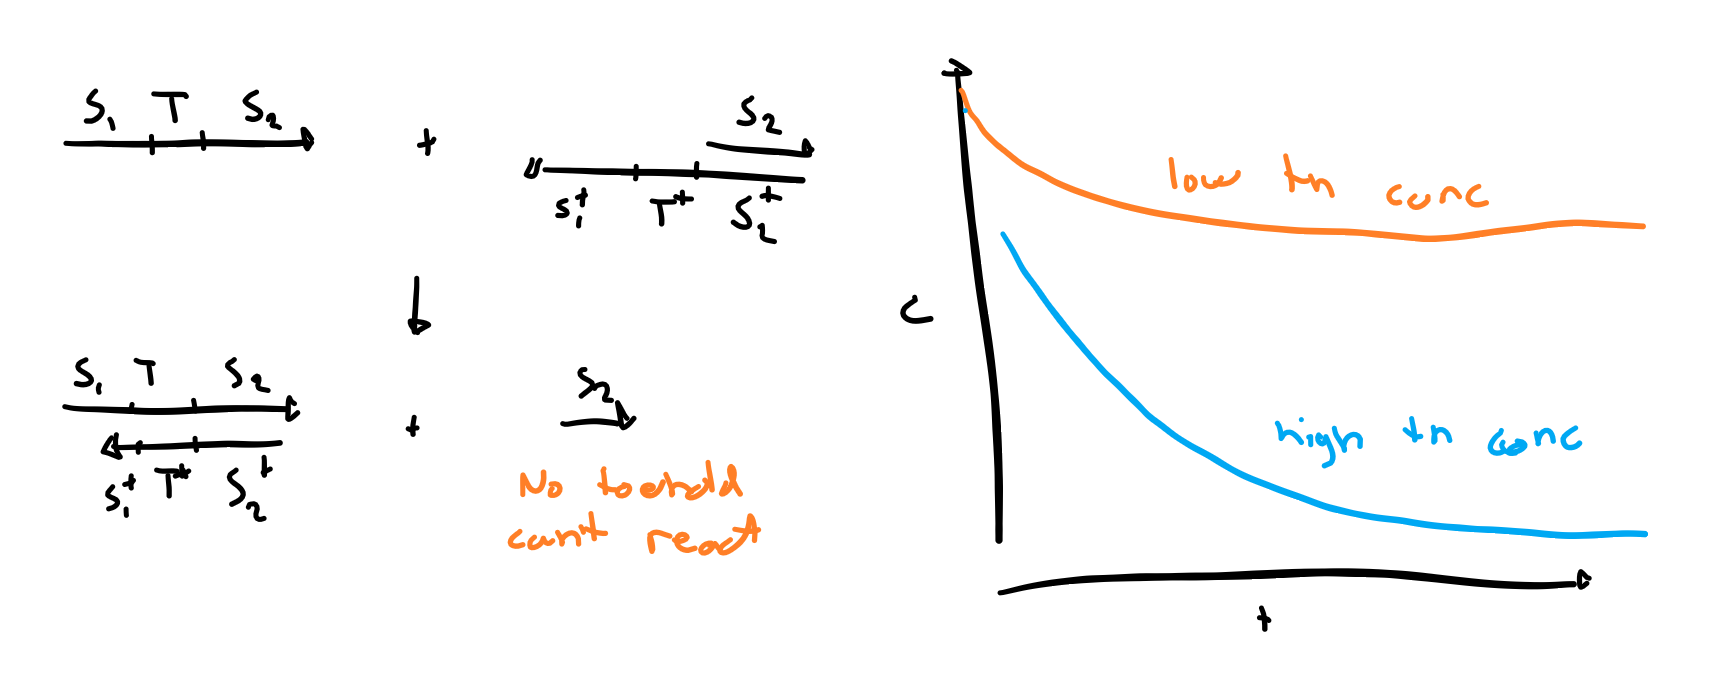 S₁ T S₂
+
S₂
S₁* T* S₂*
S₁ T S₂
+
S₂
S₁* T* S₂*
No toehold
can't react
C
low th conc
high th conc
t